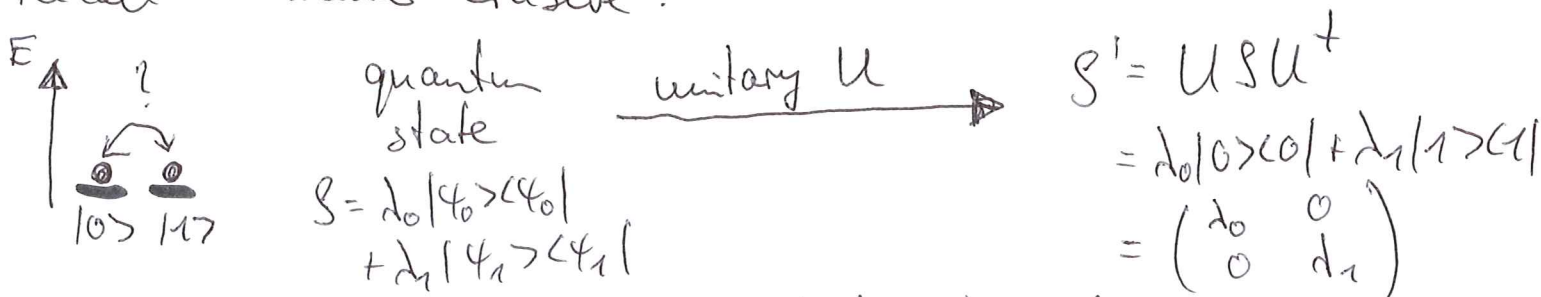 E
?
|0> |1>
quantum
state
ρ = λ₀|ψ₀><ψ₀|
+ λ₁|ψ₁><ψ₁|
unitary U
ρ' = UρU†
= λ₀|0><0| + λ₁|1><1|
= (λ₀ 0
0 λ₁)